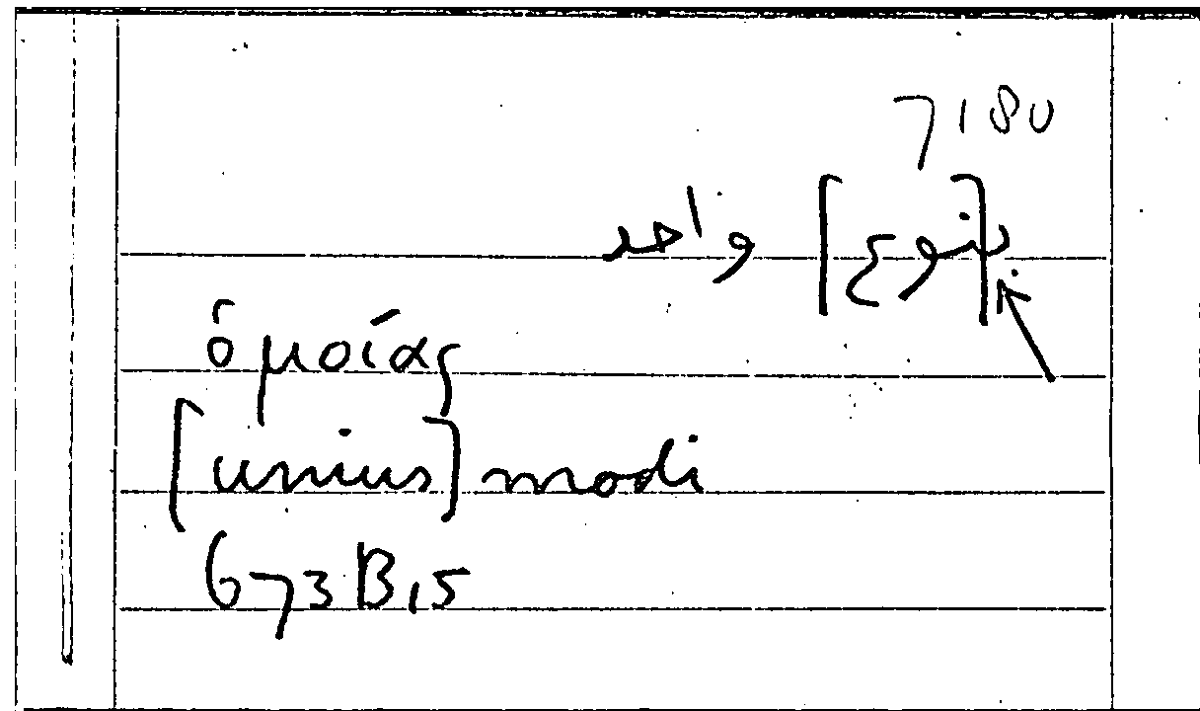 7180
ب[نوع] واحد
ὁμοίας
[unius] modi
673B15